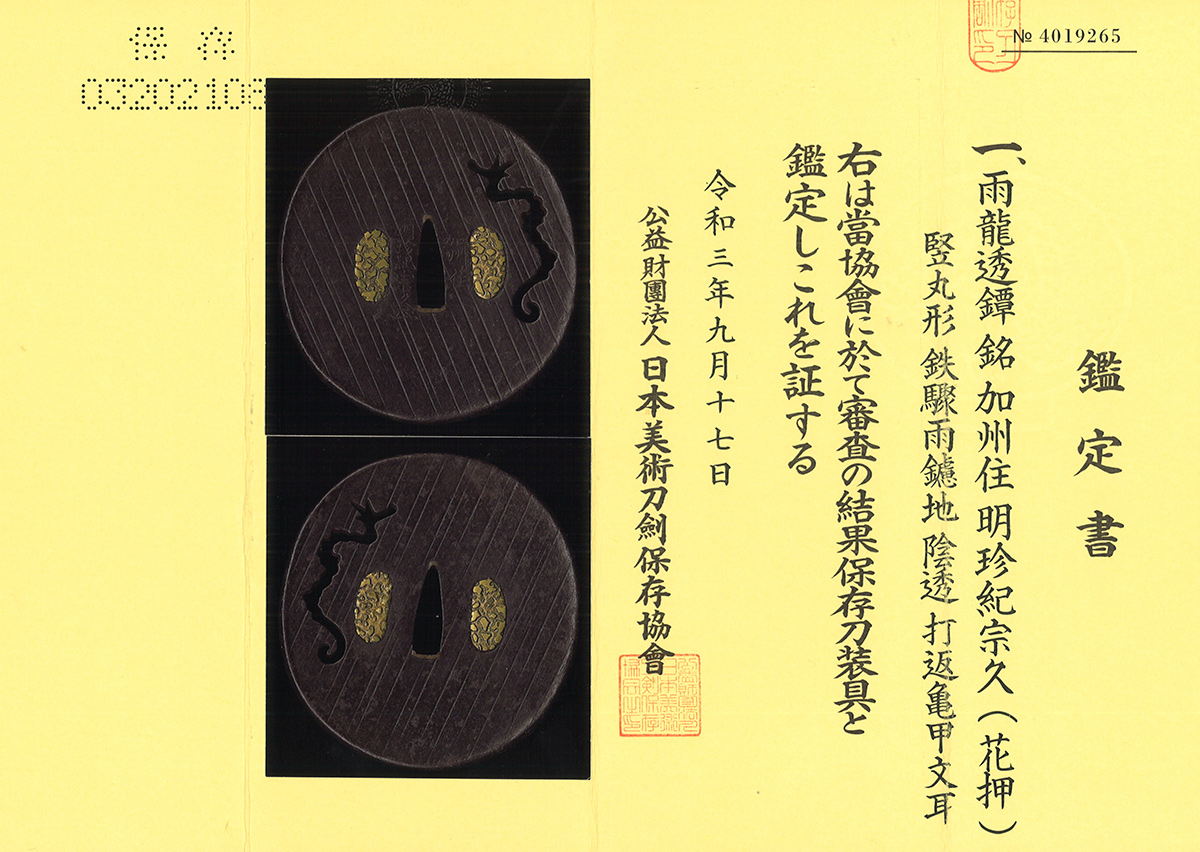 № 4019265
鑑定書
一、雨龍透鐔 銘 加州住明珍紀宗久(花押)
竪丸形 鉄驟雨鑢地 陰透 打返亀甲文耳
右は當協會に於て審査の結果保存刀装具と
鑑定しこれを証する
令和三年九月十七日
公益財團法人 日本美術刀劍保存協會
保存
0320210